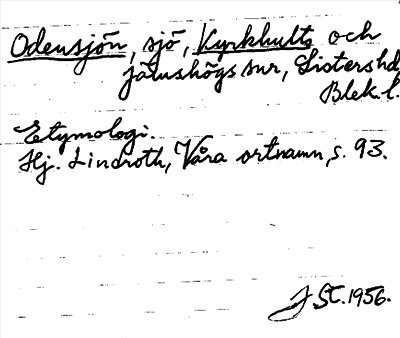 Odensjön, sjö, Kyrkhults och
Jämshögs snr, Listers hd
Blek. l.
Etymologi.
Hj. Lindroth, Våra ortnamn, s. 93.
J St. 1956.